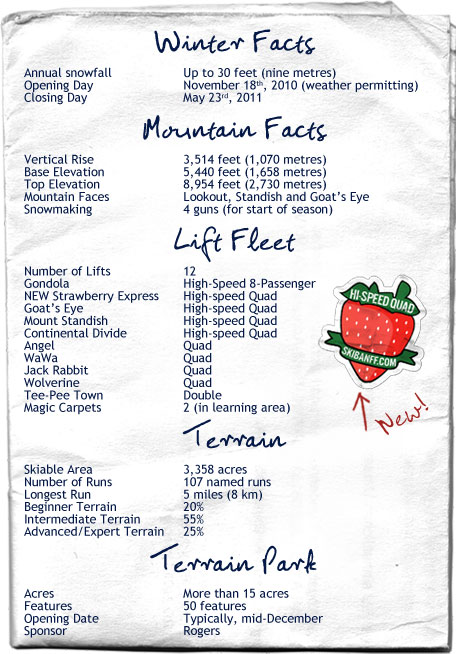 Winter Facts
Annual snowfall Up to 30 feet (nine metres)
Opening Day November 18th, 2010 (weather permitting)
Closing Day May 23rd, 2011
Mountain Facts
Vertical Rise 3,514 feet (1,070 metres)
Base Elevation 5,440 feet (1,658 metres)
Top Elevation 8,954 feet (2,730 metres)
Mountain Faces Lookout, Standish and Goat's Eye
Snowmaking 4 guns (for start of season)
Lift Fleet
Number of Lifts 12
Gondola High-Speed 8-Passenger
NEW Strawberry Express High-speed Quad
Goat's Eye High-speed Quad
Mount Standish High-speed Quad
Continental Divide High-speed Quad
Angel Quad
WaWa Quad
Jack Rabbit Quad
Wolverine Quad
Tee-Pee Town Double
Magic Carpets 2 (in learning area)
HI-SPEED QUAD
SKIBANFF.COM
New!
Terrain
Skiable Area 3,358 acres
Number of Runs 107 named runs
Longest Run 5 miles (8 km)
Beginner Terrain 20%
Intermediate Terrain 55%
Advanced/Expert Terrain 25%
Terrain Park
Acres More than 15 acres
Features 50 features
Opening Date Typically, mid-December
Sponsor Rogers